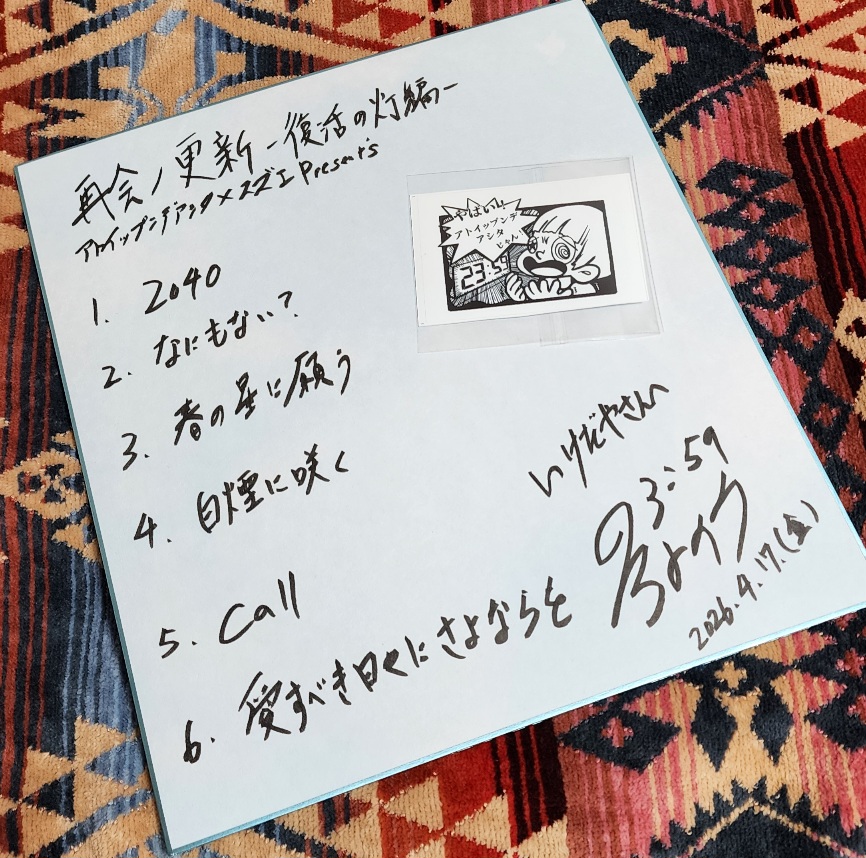 再会ノ更新-復活の灯編-
アトイップンデアシタ×スズエ Presents
1. 2040
2. なにもない?
3. 春の星に願う
4. 白煙に咲く
5. Call
6. 愛すべき日々にさよならを
やばいし!
アトイップンデ
アシタ
じゃん!
23:59
いけだやさんへ
23:59
2026.4.17.(金)